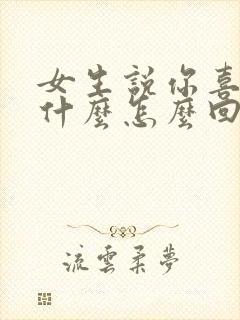 女生說你喜
什麼怎麼回
流雲柔夢